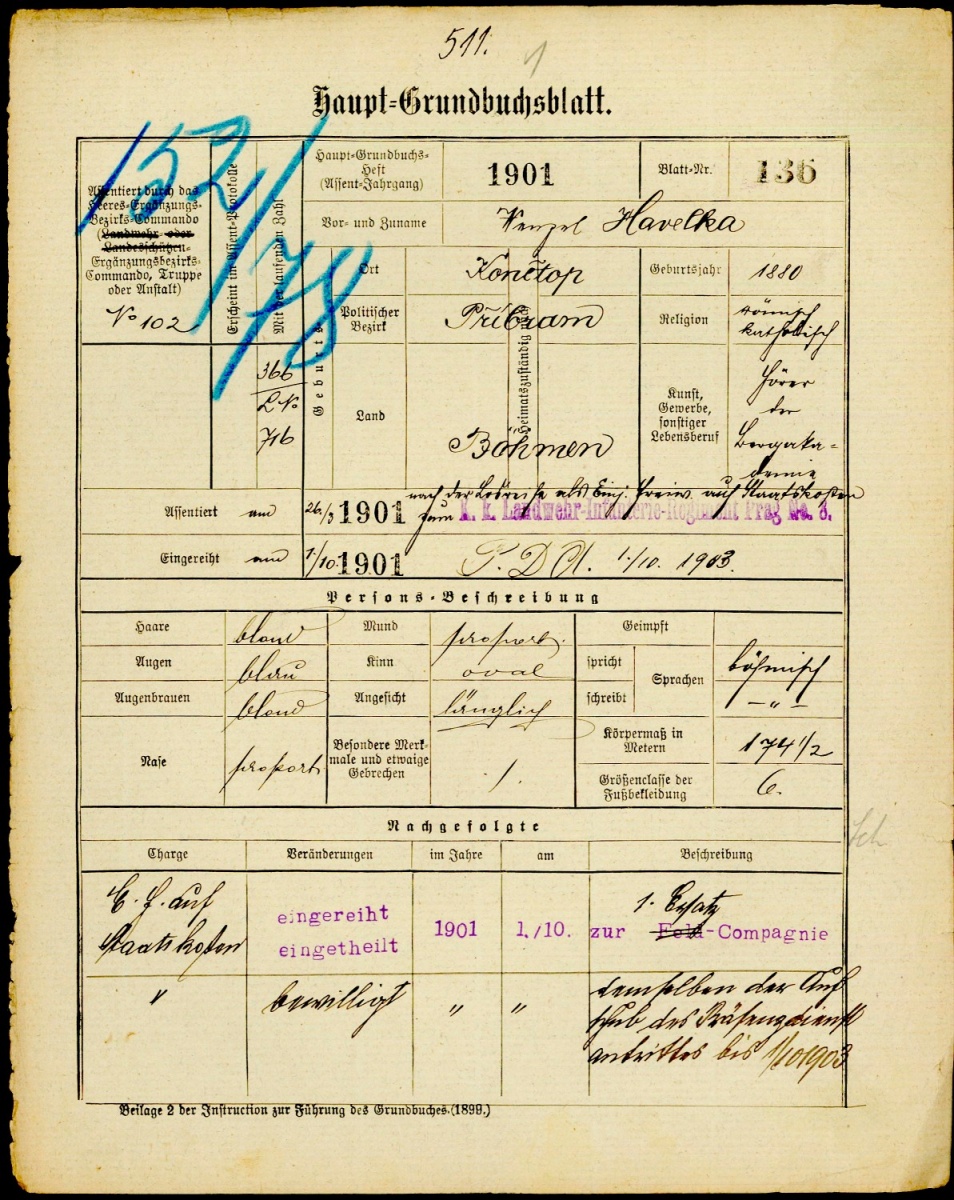 511.
Haupt-Grundbuchsblatt.
152/78
Assentiert durch das
Heeres-Ergänzungs-
Bezirks-Commando
(Landwehr- oder
Landesschützen-
Ergänzungsbezirks-
Commando, Truppe
oder Anstalt)
No 102
Erscheint im Assent-Protokolle
Mit der laufenden Zahl
366
L No
716
Haupt-Grundbuchs-
Heft
(Assent-Jahrgang)
1901
Blatt-Nr.
136
Vor- und Zuname
Wenzel Havelka
Geburts
Ort
Konětop
Geburtsjahr
1880
Politischer
Bezirk
Přibram
Religion
römisch
katholisch
Land
Böhmen
Heimatszuständig
Kunst,
Gewerbe,
sonstiger
Lebensberuf
Hörer
der
Bergaka-
demie
Assentiert am 26./3 1901
nach der Losreihe als Einj. Freiw. auf Staatskosten
zum k. k. Landwehr-Infanterie-Regiment Prag No. 8.
Eingereiht am 1./10. 1901 P. D. A. 1./10. 1903.
Persons-Beschreibung
Haare blond
Mund proport.
Geimpft
Augen blau
Kinn oval
spricht
schreibt
Sprachen
böhmisch
— " —
Augenbrauen blond
Angesicht länglich
Nase proport.
Besondere Merk-
male und etwaige
Gebrechen
/.
Körpermaß in
Metern
174 1/2
Größenclasse der
Fußbekleidung
6.
Nachgefolgte
Charge Veränderungen im Jahre am Beschreibung
E. F. auf
Staatskosten
eingereiht
eingetheilt
1901 1./10.
1. Ersatz
zur Feld-Compagnie
" bewilligt " "
demselben der Auf
schub des Präsenzdienst
antrittes bis 1/10 1903
Beilage 2 der Instruction zur Führung des Grundbuches.(1899.)